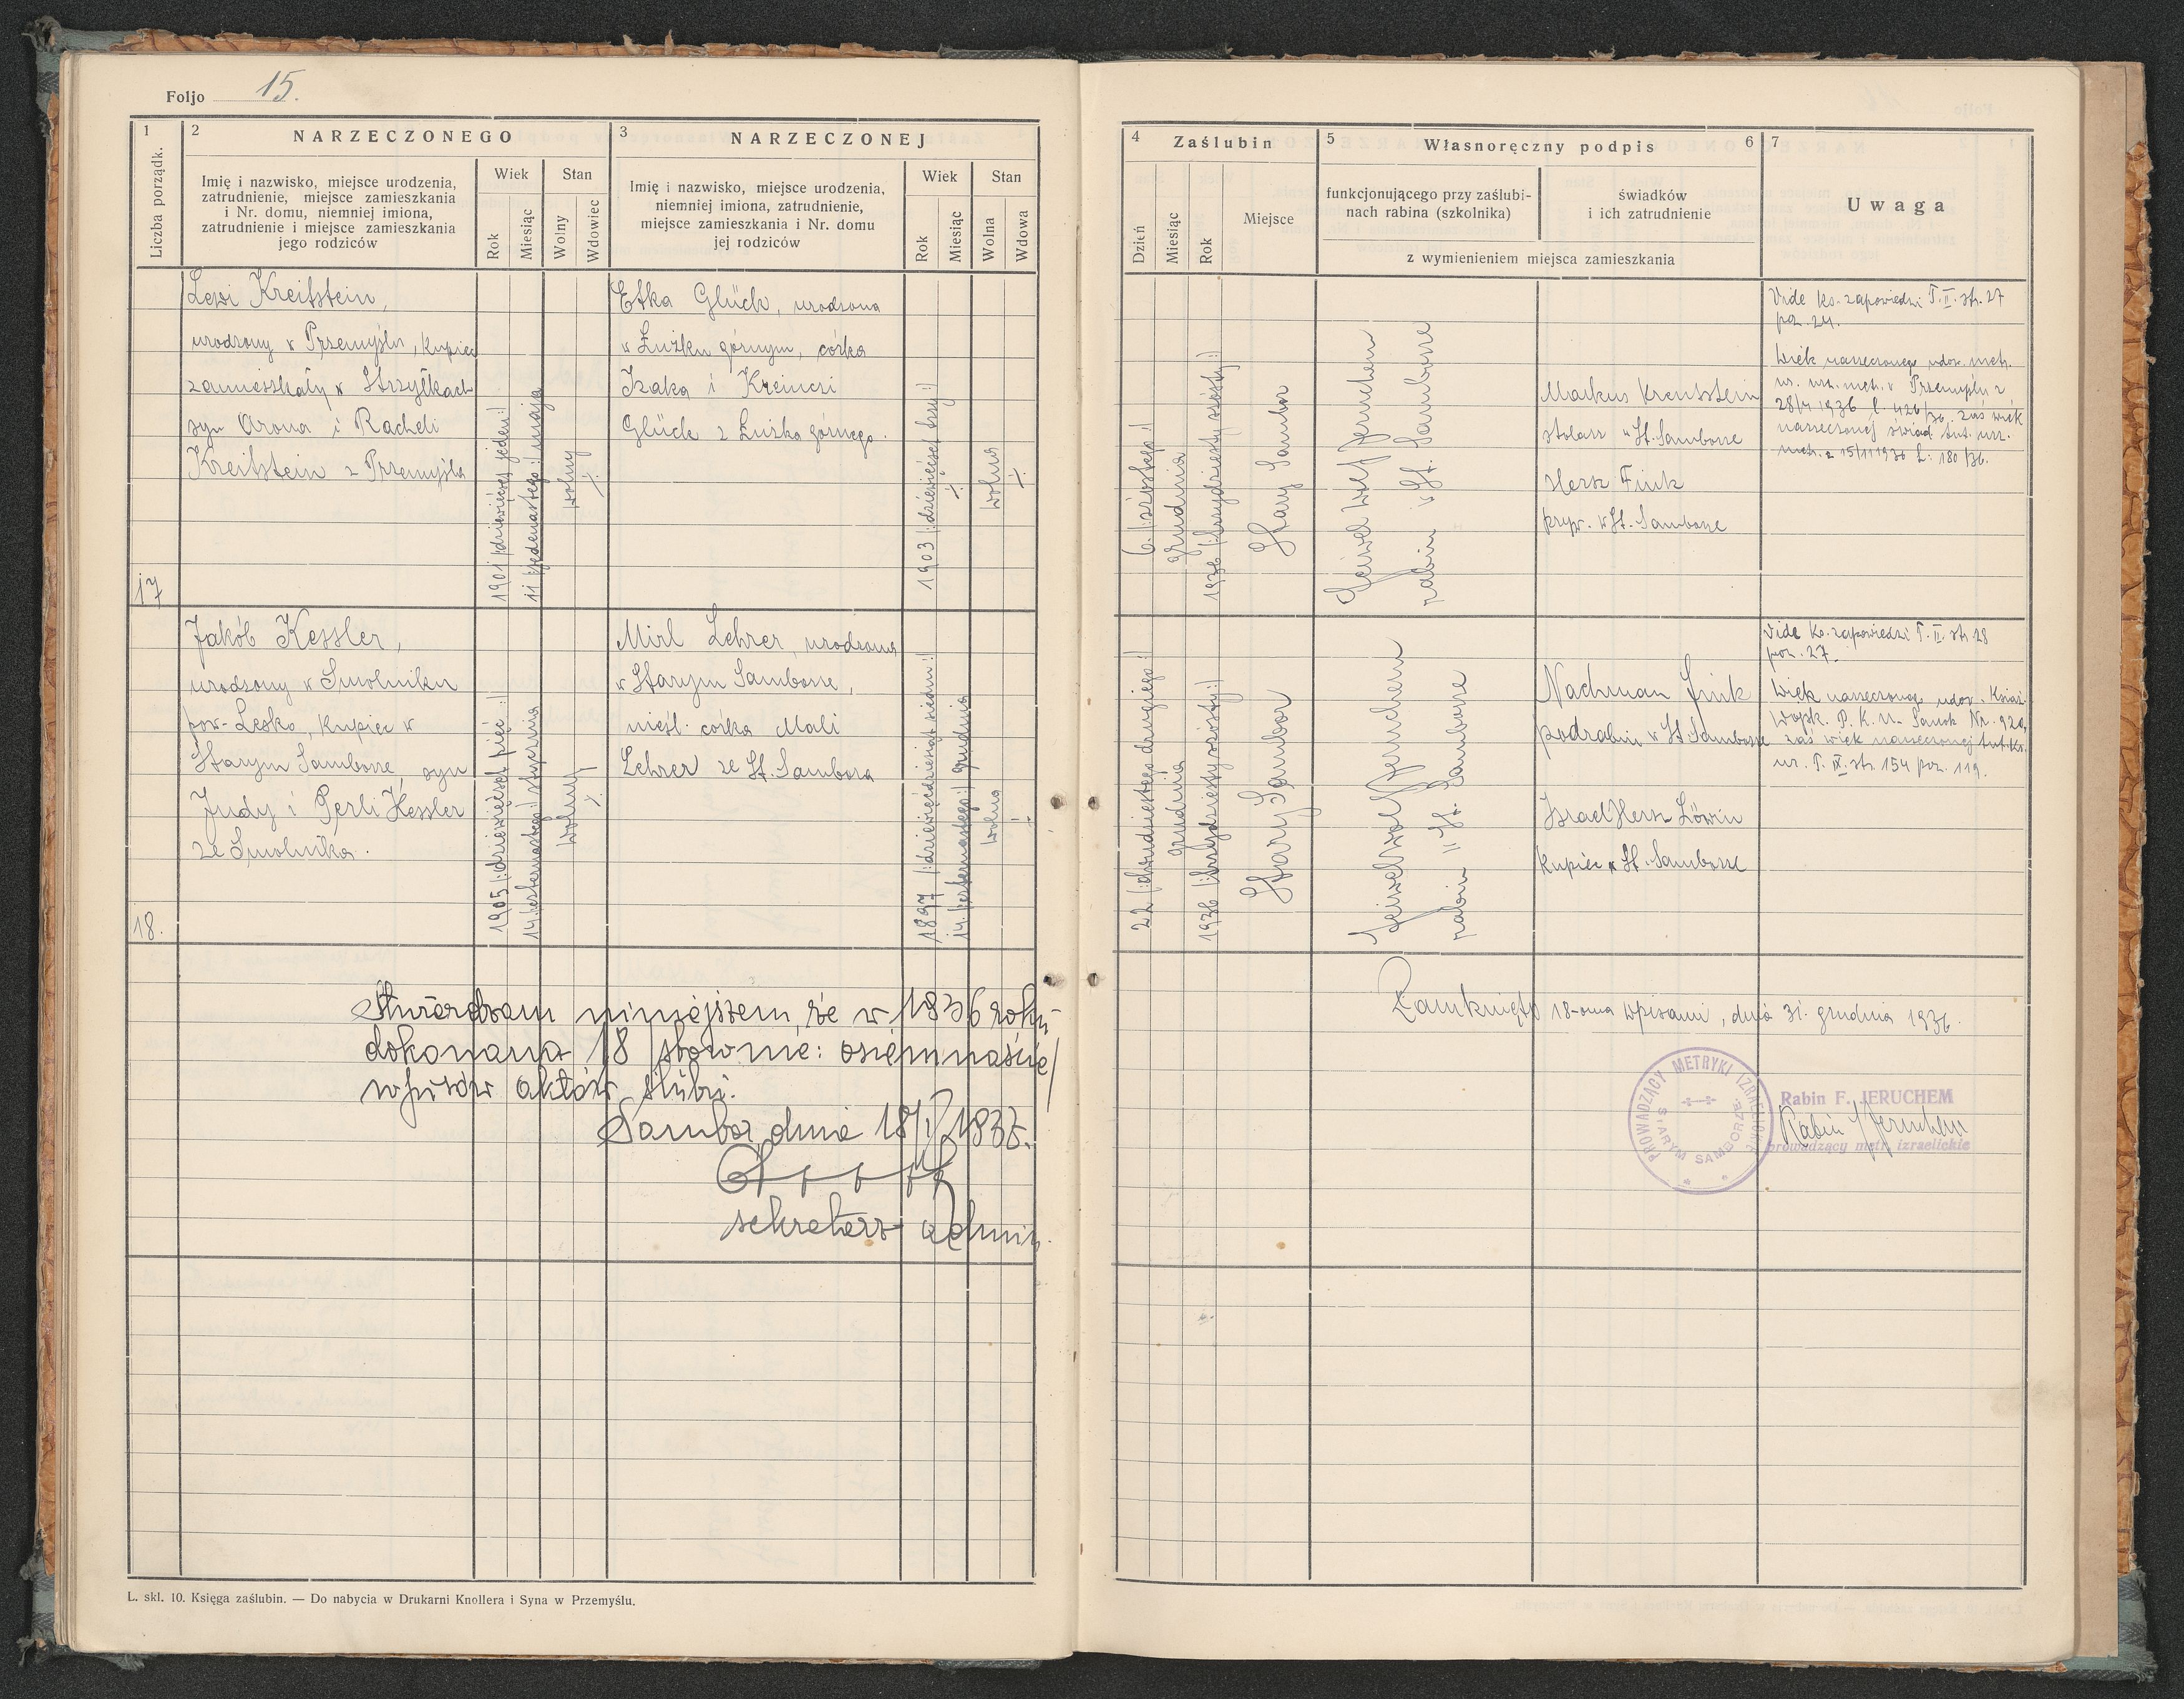 Foljo 15.
1
Liczba porządk.
2
NARZECZONEGO
Imię i nazwisko, miejsce urodzenia,
zatrudnienie, miejsce zamieszkania
i Nr. domu, niemniej imiona,
zatrudnienie i miejsce zamieszkania
jego rodziców
Wiek
Rok
Miesiąc
Stan
Wolny
Wdowiec
3
NARZECZONEJ
Imię i nazwisko, miejsce urodzenia,
niemniej imiona, zatrudnienie,
miejsce zamieszkania i Nr. domu
jej rodziców
Wiek
Rok
Miesiąc
Stan
Wolna
Wdowa
17
Lewi Kreitstein,
urodzony w Przemyślu, kupiec
zamieszkały w Strzyłkach
syn Arona i Racheli
Kreitstein z Przemyśla
1901 |:dziewięćset jeden:|
11 |:jedenastego:| maja
wolny
Etka Glück, urodzona
w Łużku górnym, córka
Izaka i Kreinczi
Glück z Łużka górnego.
1903 |:dziewięćset trzy:|
wolna
18.
Jakób Kessler,
urodzony w Smolniku
pow. Lesko, kupiec w
Starym Samborze, syn
Judy i Perli Kessler
ze Smolnika.
1905 |:dziewięćset pięć:|
14 |:czternastego:| stycznia
wolny
Mirl Lehrer, urodzona
w Starym Samborze,
nieśl. córka Mali
Lehrer ze St. Sambora
1897 |:dziewięćdziesiąt siedm:|
14. |:czternastego:| grudnia
wolna
Stwierdzam niniejszem, że w 1936 roku
dokonano 18 /słownie: osiemnaście/
wpisów aktów ślubu.
Sambor, dnia 18/I 1937.
sekretarz admin.
L. skl. 10. Księga zaślubin. — Do nabycia w Drukarni Knollera i Syna w Przemyślu.
4
Zaślubin
Dzień
Miesiąc
Rok
Miejsce
5
Własnoręczny podpis
6
funkcjonującego przy zaślubi-
nach rabina (szkolnika)
świadków
i ich zatrudnienie
z wymienieniem miejsca zamieszkania
7
Uwaga
6. |:szóstego:|
grudnia
1936 |:trzydziesty szósty:|
Stary Sambor
Feiwel Wolf Jeruchem
rabin w St. Samborze
Markus Kreitstein
stolarz w St. Samborze
Hersz Fink
pryw. w St. Samborze
Vide ks. zapowiedzi T. II. str. 27
poz. 24.
Wiek narzeczonego udow. metr.
ur. urz. metr. w Przemyślu z
28/4 1936 l. 426/36. zaś wiek
narzeczonej świad. tut. urz.
metr. z 15/11 1936 L: 180/36.
22 |:dwudziestego drugiego:|
grudnia
1936 |:trzydziesty szósty:|
Stary Sambor
Feiwel Wolf Jeruchem
rabin w St. Samborze
Nachman Fink
podrabin w St. Samborze
Israel Hersz Löwin
kupiec w St. Samborze
Vide ks. zapowiedzi T. II. str. 28
poz. 27.
Wiek narzeczonego udow. Książ.
Wojsk. P. K. U. Sanok Nr. 920,
zaś wiek narzeczonej tut. ks.
ur. T. IX. str. 154 poz. 119.
Zamknięto 18-oma wpisami, dnia 31. grudnia 1936.
PROWADZĄCY METRYKI IZRAELICKIE
STARYM SAMBORZE
Rabin F. JERUCHEM
Rabin F Jeruchem
prowadzący metr. izraelickie